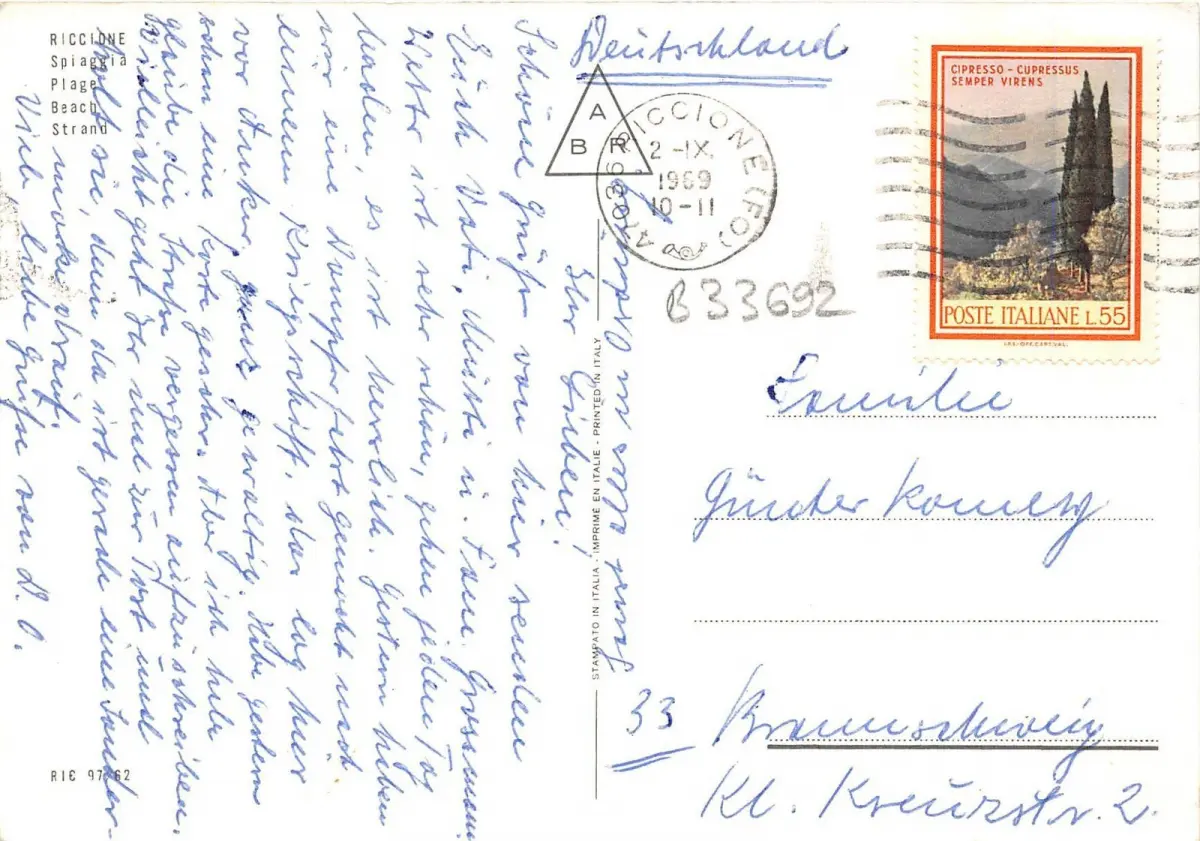 RICCIONE
Spiaggia
Plage
Beach
Strand
Ihr Lieben!
Schöne Grüße von hier senden
Euch Vati, Mutti u. Fam. Grossmann
Wetter ist sehr schön, gehen jeden Tag
baden, es ist herrlich. Gestern haben
wir eine Dampferfahrt gemacht nach
einem Kriegsschiff, das lag hier
vor Anker, ganz gewaltig. Habe gestern
schon eine Karte geschr. Aber ich habe
glaube die Straße vergessen aufzuschreiben.
Vielleicht geht Ihr mal zur Post und
holt sie, denn da ist gerade eine Sonder-
marke drauf.
Viele liebe Grüße von
RIC 97/62
STAMPATO IN ITALIA - IMPRIME EN ITALIE - PRINTED IN ITALY
Deutschland
A
B R
RICCIONE (FO)
2-IX.
1969
10-11
B33692
CIPRESSO - CUPRESSUS
SEMPER VIRENS
POSTE ITALIANE L.55
Familie
Günter
33 Braunschweig
Kl. Kreuzstr. 2.